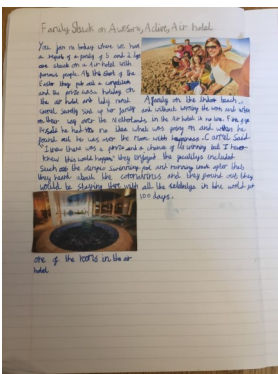 Family Stuck on Awesome, Active, Air hotel
You join us today where we had
a report of a family of 5 and 2 dogs
are stuck on a Air hotel with
famous people. At the start of the
Easter they put out a competition
and the prize was holiday on
the air hotel and lady named
Carrol swiftly sent of her form and without worrying she won and were
on their way over the Netherlands in the air hotel in no time.
people had no Idea what was going on and when he
found out he was over the moon with happiness. Carrol Said
"I knew there was a prize and a chance of us winning but I never
knew this would happen" they enjoyed the facilitys included
Such as the olympic Swimming pool and running track after that
they heard about the coronavirus and they found out they
would be staying there with all the celebritys in the world for
100 days.
A family on the indoor beach.
one of the rooms in the air
hotel